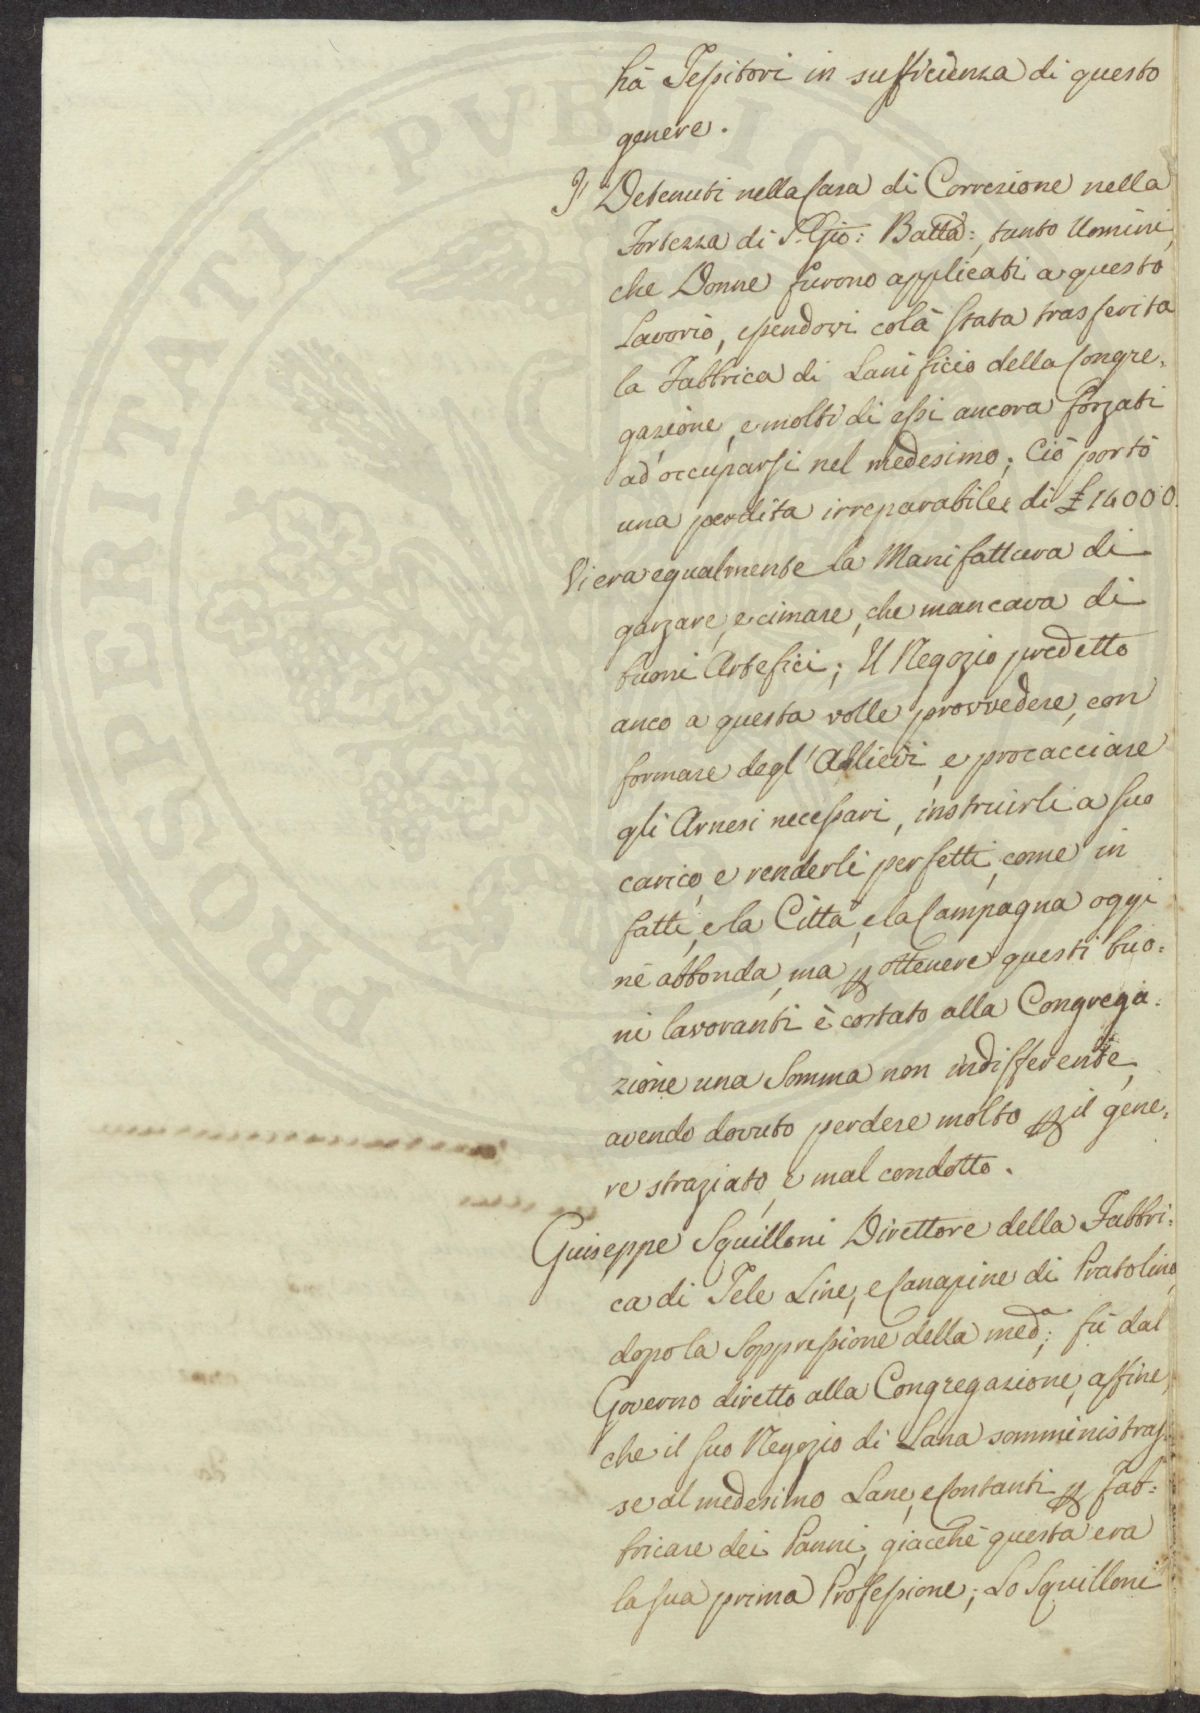 hà Tessitori in sufficienza di questo
genere.
I Detenuti nella Casa di Correzione nella
Fortezza di S. Gio: Batta:, tanto Uomini,
che Donne furono applicati a questo
Lavorio, essendovi colà stata trasferita
la Fabbrica di Lanificio della Congre=
gazione, e molti di essi ancora forzati
ad occuparsi nel medesimo; Ciò portò
una perdita irreparabile di £ 14000.
Vi era egualmente la Manifattura di
garzare, e cimare, che mancava di
buoni Artefici; Il Negozio predetto
anco a questa volle provvedere, con
formare degl'Allievi, e procacciare
gli Arnesi necessari, instruirli a suo
carico, e renderli perfetti, come in
fatti, e la Città, e la Campagna oggi
nè abbonda, ma p ottenere questi buo=
ni lavoranti è costato alla Congrega=
zione una Somma non indifferente,
avendo dovuto perdere molto p il gene=
re straziato, e mal condotto.
Guiseppe Squilloni Direttore della Fabbri=
ca di Tele Line, e Canapine di Pratolino,
dopo la Soppressione della med:ª fù dal
Governo diretto alla Congregazione, affine,
che il suo Negozio di Lana somministras=
se al medesimo Lane, e Contanti p fab=
bricare dei Panni, giacchè questa era
la sua prima Professione; Lo Squilloni
PROSPERITATI PUBLIC